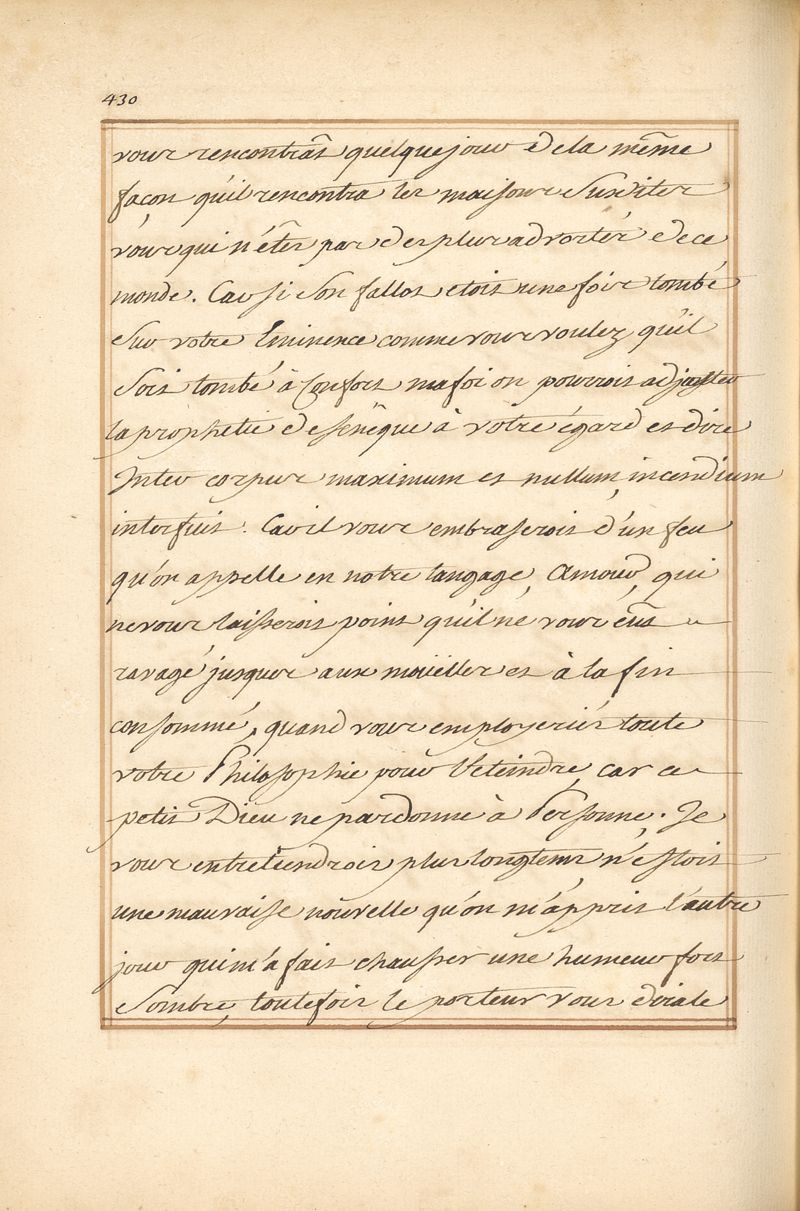 430
vous rencontrât quelque jour de la même
façon qu'il rencontra les maisons Susditer
vous qui n'êtes pas des plus advortés de ce
monde. Car si Son fallot etoit une fois tombé
Sur votre Eminence comme vous voulez qu'il
Soit tombé à Confort ma foi on pourroit adjouster
la prophetie de Senêque à votre égard et dire
Inter corpus maximum et nullum, incendium
interfuit. Car il vous embraseroit d'un feu
qu'on appelle en notre langage, Amour, qui
ne vous laisseroit point qu'il ne vous eût
ravagé jusques aux moüelles et à la fin
consommé, quand vous employeriés toute
votre Philosophie pour l'eteindre, car ce
petit Dieu ne pardonne à Personne. Je
vous entretiendrois plus longtems n'estoit
une mauvaise nouvelle qu'on m'apprit l'autre
jour qui m'a fait chausser une humeur fort
Sombre, toutefois le porteur vous dira le